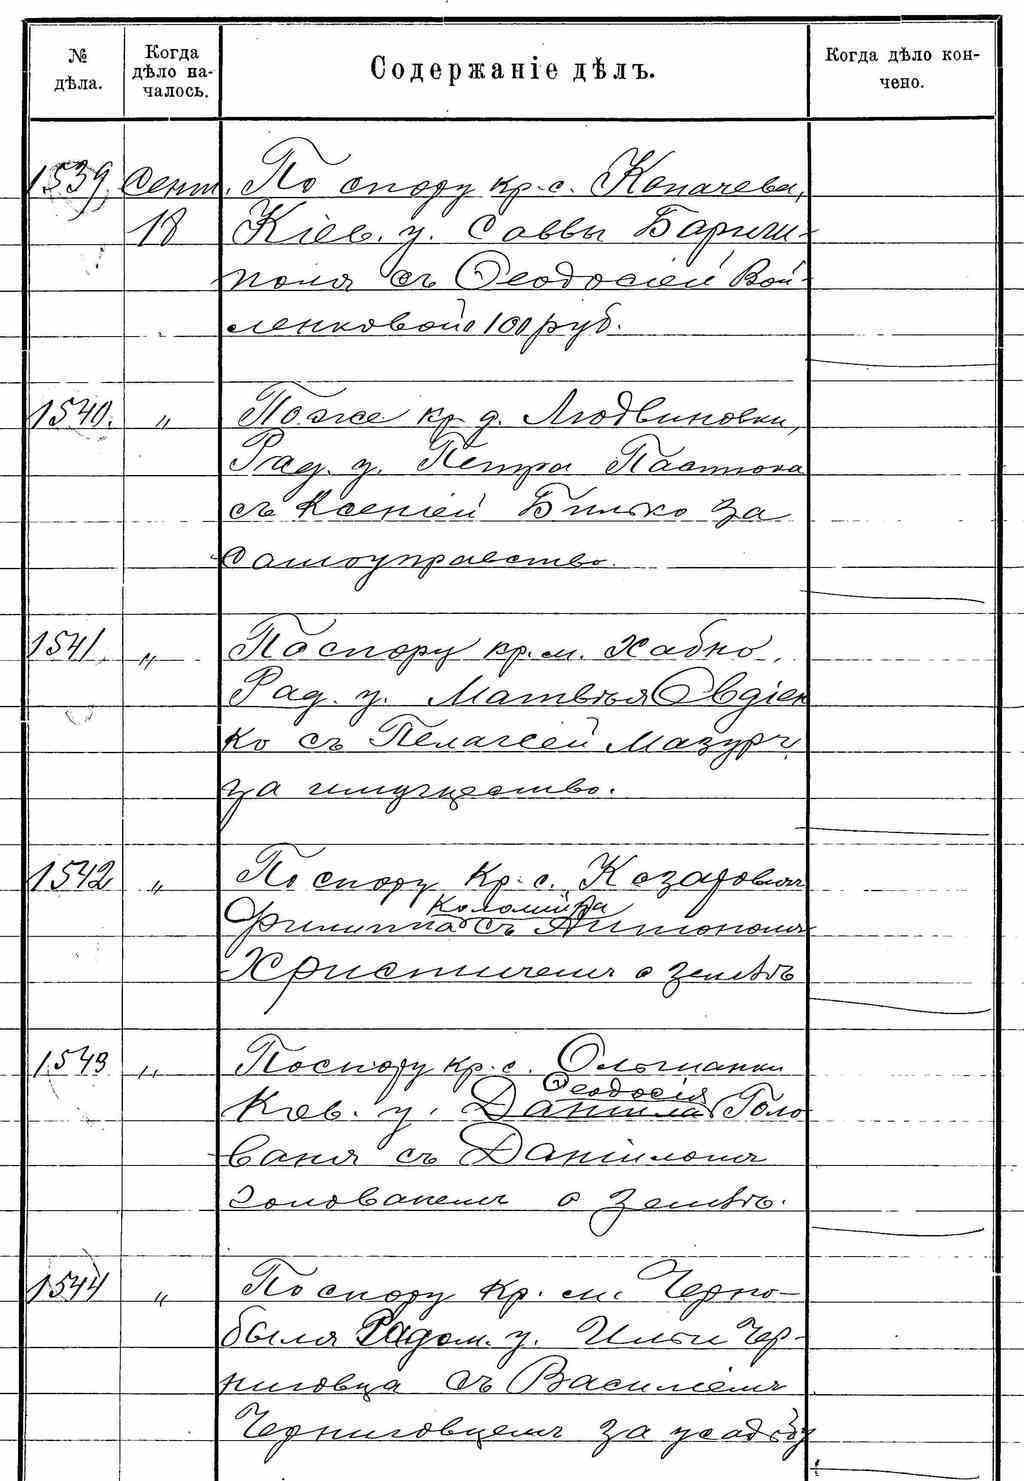 № дѣла.
Когда дѣло на-чалось.
Содержаніе дѣлъ.
Когда дѣло кон-чено.
1539, Сент. По спору кр. с. Копачева,
18 Кіев. у. Саввы Барыш-
поля съ Ѳеодосіей Вой-
ленковой о 100 руб.
1540. „ По же кр. д. Людвиновки,
Рад. у. Петра
съ Ксеніей Билько за
самоуправство.
1541. „ По спору кр. м. Хабно,
Рад. у. Матвѣя Овдіен
ко съ Пелагеей Мазур
за имущество.
1542 „ По спору кр. с. Козаровичъ
Коломійца
Филиппа съ Антономъ
Христичемъ о землѣ
1543 „ По спору кр. с. Ольшанки
Ѳеодосія
Кіев. у. Даніила Голо
ваня съ Даніиломъ
Голованемъ о землѣ.
1544 „ По спору кр. м. Черно-
быля Радом. у. Ильи Чер-
ниговца съ Василіемъ
Черниговцемъ за усадьбу